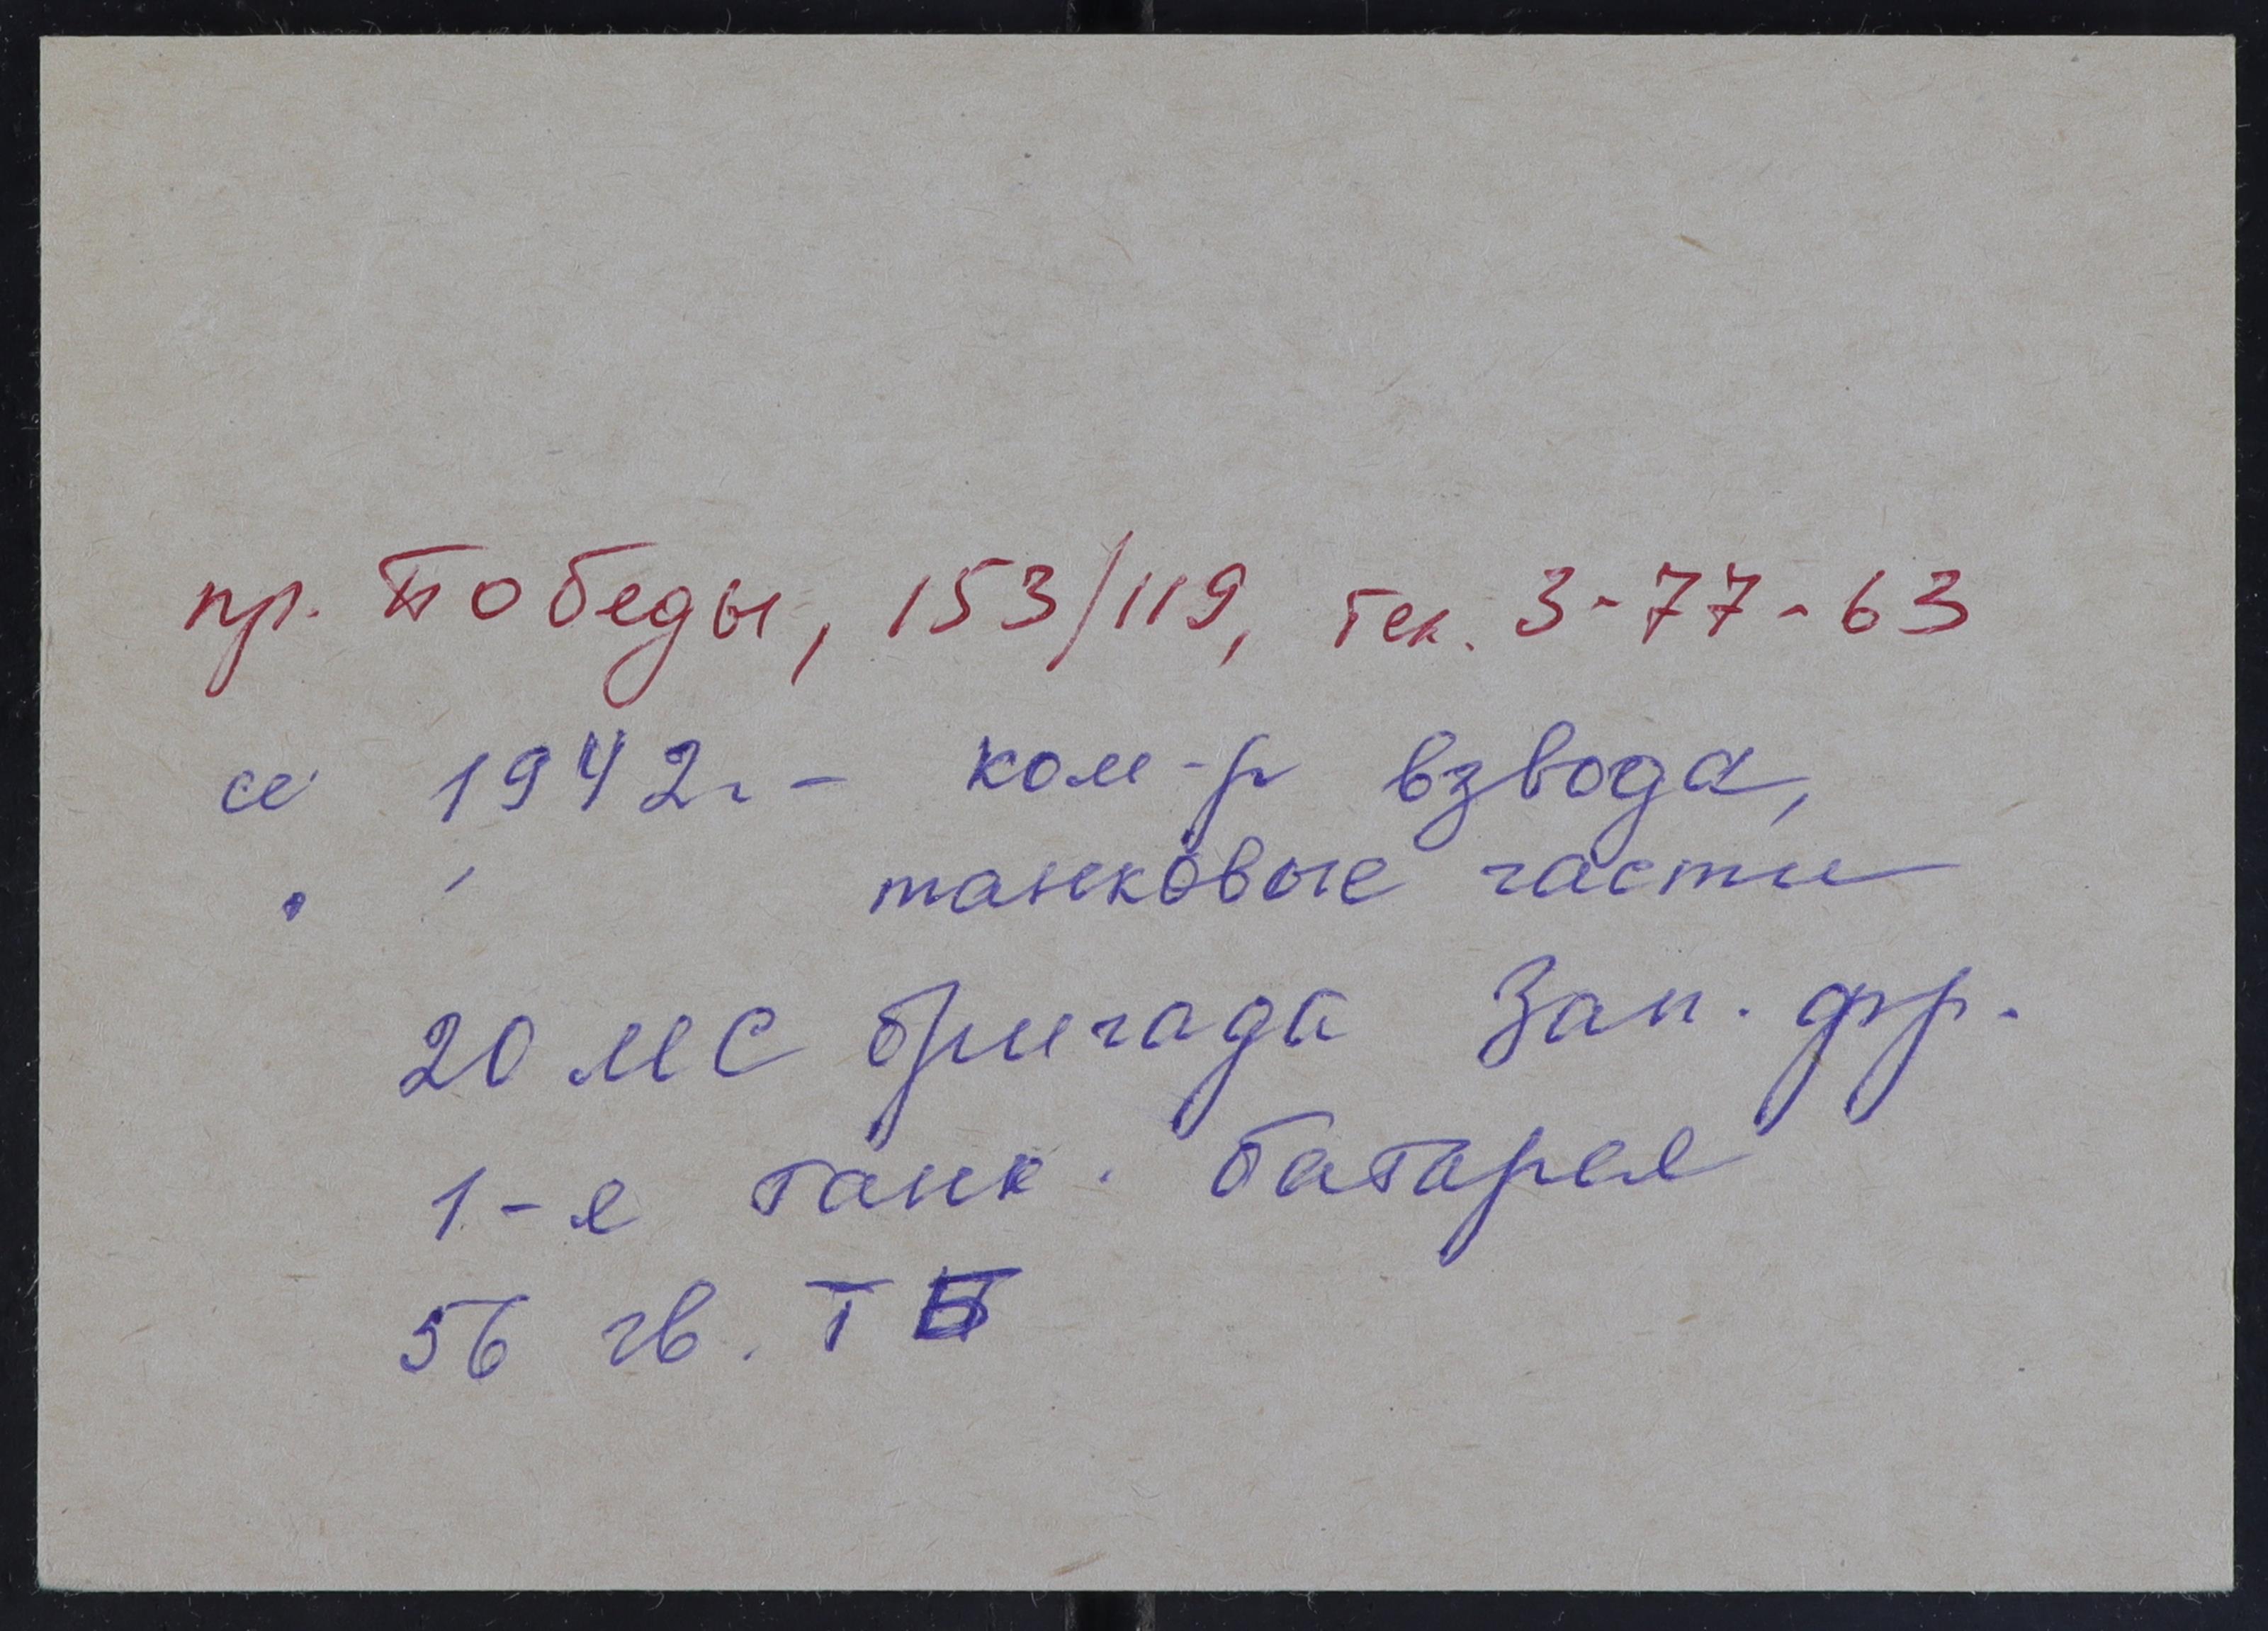 пр. Победы, 153/119, тел. 3-77-63
с 1942г. - ком-р взвода,
танковые части
20 МС бригада Зап. фр.
1-я танк. батарея
56 гв. ТБ